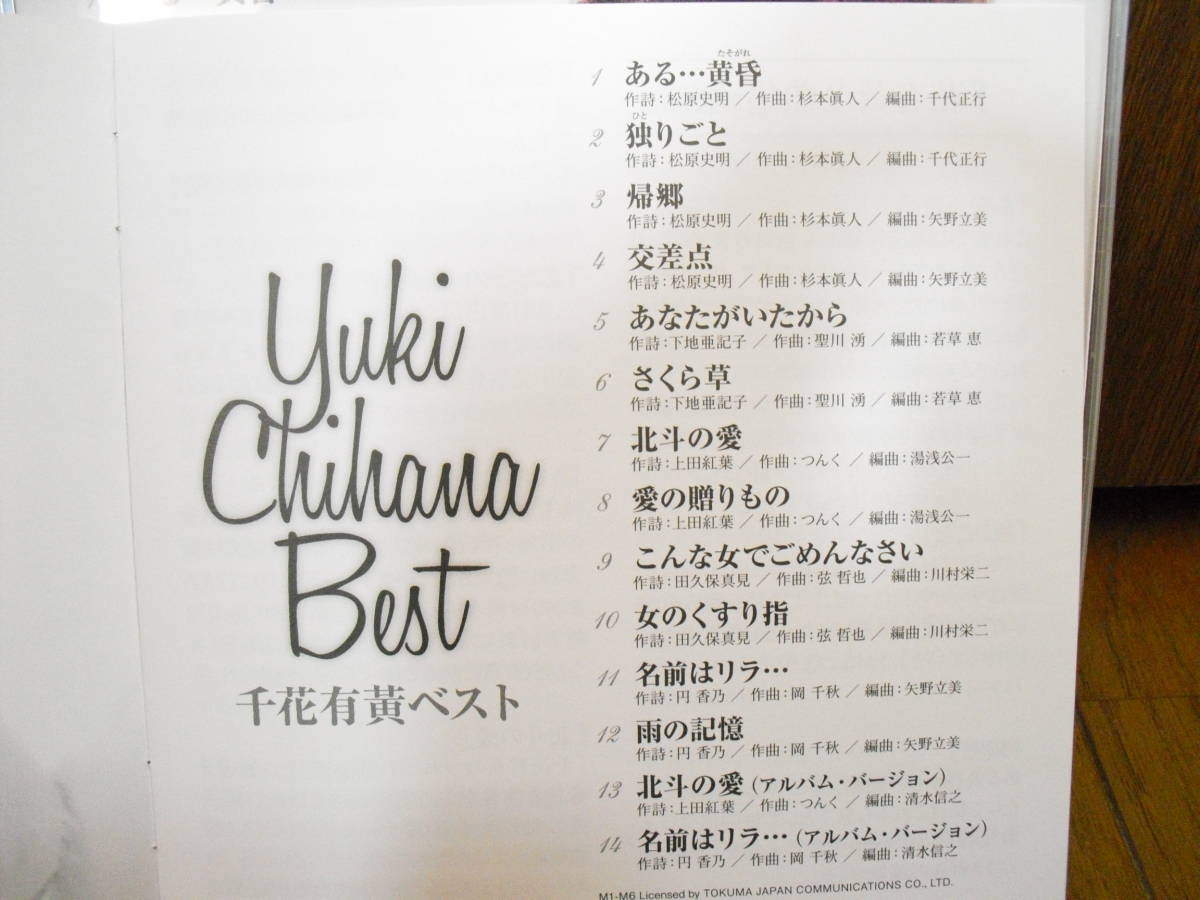 Yuki
Chihana
Best
千花有黄ベスト
たそがれ
1 ある…黄昏
作詩：松原史明 ／ 作曲：杉本眞人 ／ 編曲：千代正行
ひと
2 独りごと
作詩：松原史明 ／ 作曲：杉本眞人 ／ 編曲：千代正行
3 帰郷
作詩：松原史明 ／ 作曲：杉本眞人 ／ 編曲：矢野立美
4 交差点
作詩：松原史明 ／ 作曲：杉本眞人 ／ 編曲：矢野立美
5 あなたがいたから
作詩：下地亜記子 ／ 作曲：聖川 湧 ／ 編曲：若草 恵
6 さくら草
作詩：下地亜記子 ／ 作曲：聖川 湧 ／ 編曲：若草 恵
7 北斗の愛
作詩：上田紅葉 ／ 作曲：つんく ／ 編曲：湯浅公一
8 愛の贈りもの
作詩：上田紅葉 ／ 作曲：つんく ／ 編曲：湯浅公一
9 こんな女でごめんなさい
作詩：田久保真見 ／ 作曲：弦 哲也 ／ 編曲：川村栄二
10 女のくすり指
作詩：田久保真見 ／ 作曲：弦 哲也 ／ 編曲：川村栄二
11 名前はリラ…
作詩：円 香乃 ／ 作曲：岡 千秋 ／ 編曲：矢野立美
12 雨の記憶
作詩：円 香乃 ／ 作曲：岡 千秋 ／ 編曲：矢野立美
13 北斗の愛（アルバム・バージョン）
作詩：上田紅葉 ／ 作曲：つんく ／ 編曲：清水信之
14 名前はリラ…（アルバム・バージョン）
作詩：円 香乃 ／ 作曲：岡 千秋 ／ 編曲：清水信之
M1-M6 Licensed by TOKUMA JAPAN COMMUNICATIONS CO., LTD.